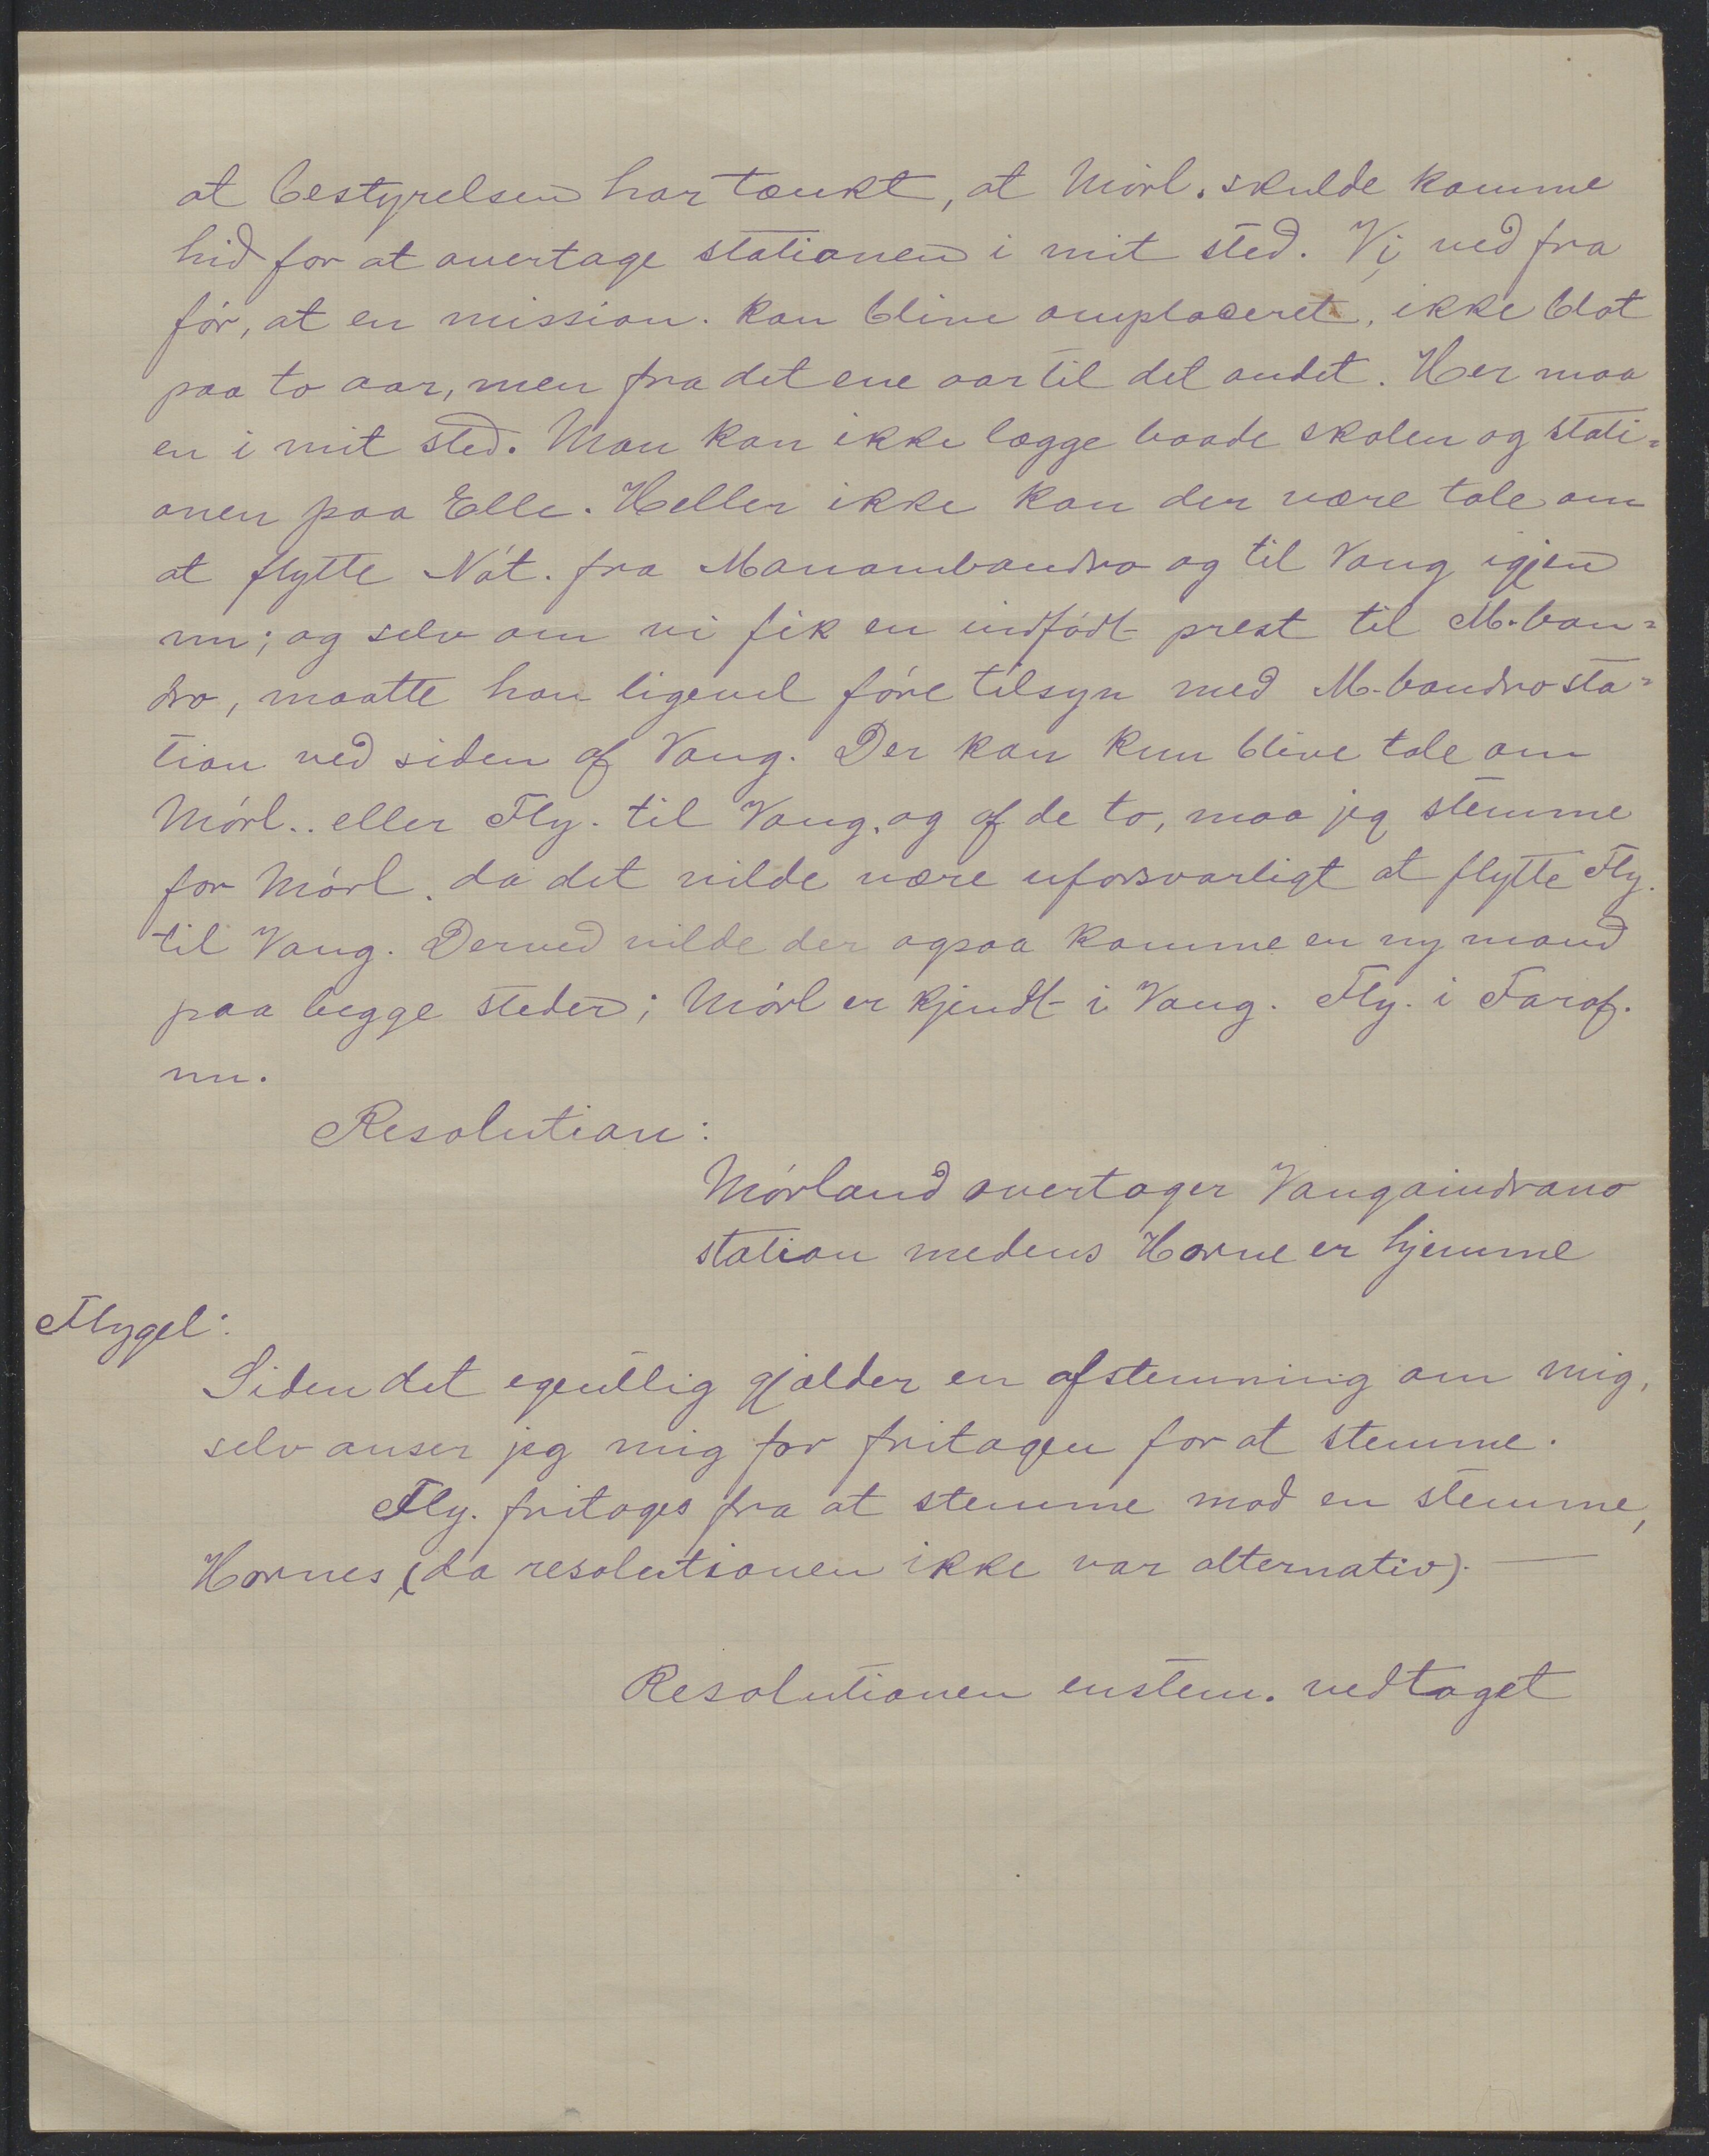 at bestyrelsen har tænkt, at Mórl. skulde komme
hid for at overtage stationen i mit sted. Vi ved fra
fór, at en mission. kan blive omplaceret, ikke blot
paa to aar, men fra det ene aar til det andet. Her maa
en i mit sted. Man kan ikke lægge baade skolen og stati=
onen paa Elle. Heller ikke kan der være tale om
at flytte Nót. fra Manambondro og til Vang igjen
nu; og selv om vi fik en indfódt prest til M.bon=
dro, maatte han ligevel fóre tilsyn med M.bondro sta=
tion ved siden af Vang. Der kan kun blive tale om
Mórl.. eller Fly. til Vang. og af de to, maa jeg stemme
for Mórl. da det vilde være uforsvarligt at flytte Fly.
til Vang. Derved vilde der ogsaa komme en ny mand
paa begge steder; Mórl er kjendt i Vang. Fly. i Faraf.
nu.
Resolution:
Mórland overtager Vangaindrano
station medens Horne er hjemme
Flygel:
Siden det egentlig gjælder en afstemning om mig,
selv anser jeg mig for fritagen for at stemme.
Fly. fritages fra at stemme mod en stemme,
Hornes, (da resolutionen ikke var alternativ). —
Resolutionen enstem. vedtaget